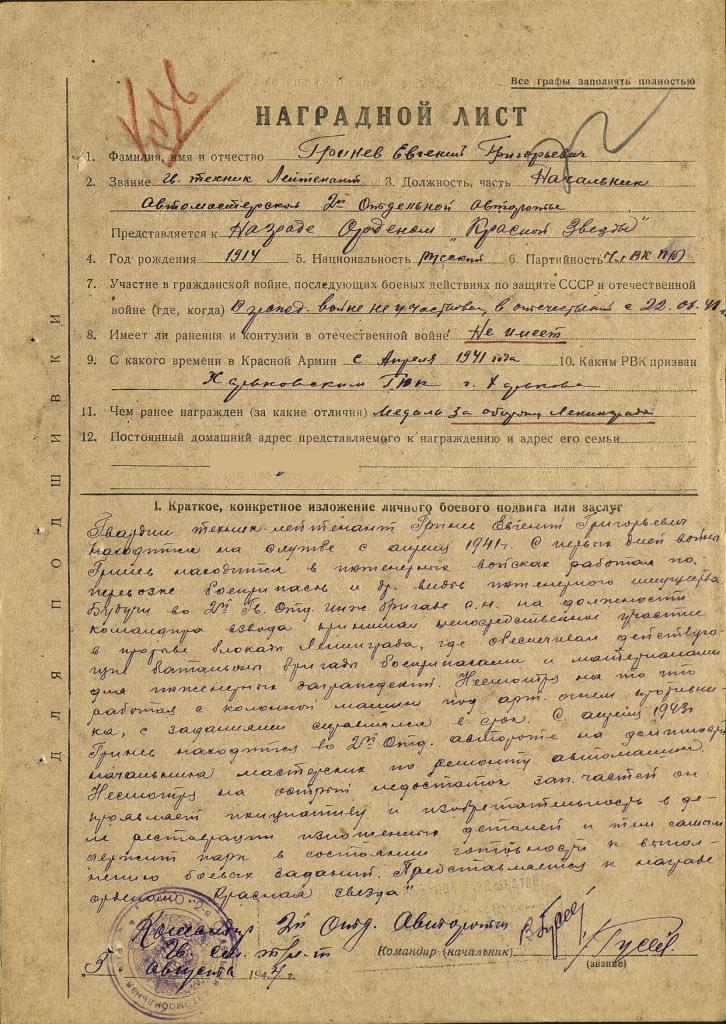 Все графы заполнять полностью
НАГРАДНОЙ ЛИСТ
1. Фамилия, имя и отчество Гринев Евгений Григорьевич
2. Звание Гв. техник Лейтенант 3. Должность, часть Начальник
Автомастерской 2й Отдельной Автороты
Представляется к Награде Орденом "Красной Звезды"
4. Год рождения 1914 5. Национальность русский 6. Партийность чл ВКП(б)
7. Участие в гражданской войне, последующих боевых действиях по защите СССР и отечественной
войне (где, когда) В гражд. войне не участвовал, в отечественной с 22.06.41
8. Имеет ли ранения и контузии в отечественной войне Не имеет
9. С какого времени в Красной Армии с Апреля 1941 года 10. Каким РВК призван
Харьковским г. Харькова
11. Чем ранее награжден (за какие отличия) Медаль За оборону Ленинграда
12. Постоянный домашний адрес представляемого к награждению и адрес его семьи
"
ДЛЯ ПОДШИВКИ
I. Краткое, конкретное изложение личного боевого подвига или заслуг
Гвардии техник-лейтенант Гринев Евгений Григорьевич
находится на службе с апреля 1941г. С первых дней войны
Гринев находится в инженерных войсках работая по
перевозке боеприпасов и др. видов инженерного имущества
Будучи во 2й Гв. Отд. Инж. бригаде С.Н. на должности
командира взвода принимал непосредственное участие
в прорыве блокады Ленинграда, где обеспечивал действую-
щие батальоны бригады боеприпасами и материалами
для инженерных заграждений. Несмотря на то что
работал с колонной машин под арт. огнем противни-
ка, с заданиями справлялся в срок. С апреля 1943г
Гринев находится во 2й Отд. автороте на должности
начальника мастерских по ремонту автомашин.
Несмотря на острый недостаток зап. частей он
проявляет инициативу и изобретательность в де-
ле реставрации изношенных деталей и тем самым
держит парк в состоянии готовности к выпол-
нению боевых заданий. Представляется к награде
орденом "Красная звезда"
Командир 2й Отд. Автороты
Гв.
Командир (начальник)
(звание)
5 августа 1944 г.